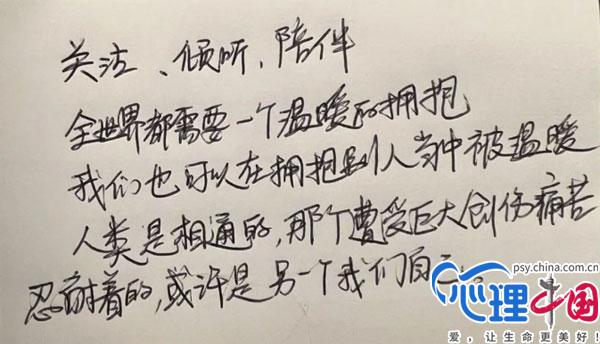 关注、倾听、陪伴
全世界都需要一个温暖的拥抱
我们也可以在拥抱别人当中被温暖
人类是相通的,那个遭受巨大创伤痛苦
忍耐着的,或许是另一个我们自己。
psy.china.com.cn
心理中国
爱,让生命更美好!